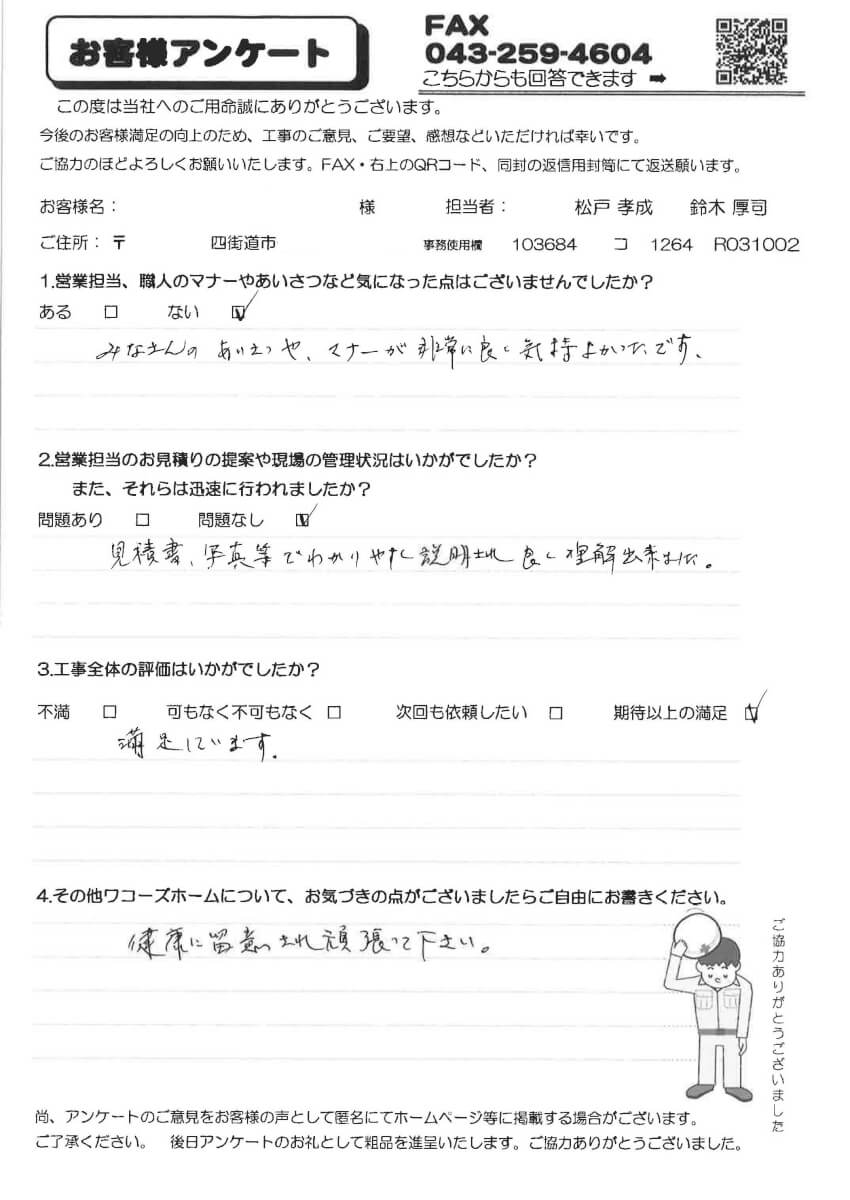 お客様アンケート
FAX
043-259-4604
こちらからも回答できます ➡
この度は当社へのご用命誠にありがとうございます。
今後のお客様満足の向上のため、工事のご意見、ご要望、感想などいただければ幸いです。
ご協力のほどよろしくお願いいたします。FAX・右上のQRコード、同封の返信用封筒にて返送願います。
お客様名： 様 担当者： 松戸 孝成 鈴木 厚司
ご住所：〒 四街道市 事務使用欄 103684 コ 1264 R031002
1.営業担当、職人のマナーやあいさつなど気になった点はございませんでしたか？
ある □ ない ☑
みなさんの あいさつ や、マナーが 非常に良く 気持よかったです、
2.営業担当のお見積りの提案や現場の管理状況はいかがでしたか？
また、それらは迅速に行われましたか？
問題あり □ 問題なし ☑
見積書、写真等でわかりやすく説明され 良く理解出来ました。
3.工事全体の評価はいかがでしたか？
不満 □ 可もなく不可もなく □ 次回も依頼したい □ 期待以上の満足 ☑
満足しています。
4.その他ワコーズホームについて、お気づきの点がございましたらご自由にお書きください。
健康に留意され頑張って下さい。
ご協力ありがとうございました
尚、アンケートのご意見をお客様の声として匿名にてホームページ等に掲載する場合がございます。
ご了承ください。 後日アンケートのお礼として粗品を進呈いたします。ご協力ありがとうございました。